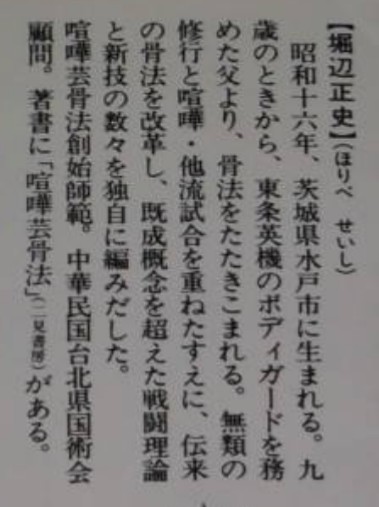 【堀辺正史】(ほりべ せいし)
昭和十六年、茨城県水戸市に生まれる。九
歳のときから、東条英機のボディガードを務
めた父より、骨法をたたきこまれる。無類の
修行と喧嘩・他流試合を重ねたすえに、伝来
の骨法を改革し、既成概念を超えた戦闘理論
と新技の数々を独自に編みだした。
喧嘩芸骨法創始師範。中華民国台北県国術会
顧問。著書に「喧嘩芸骨法」(二見書房)がある。